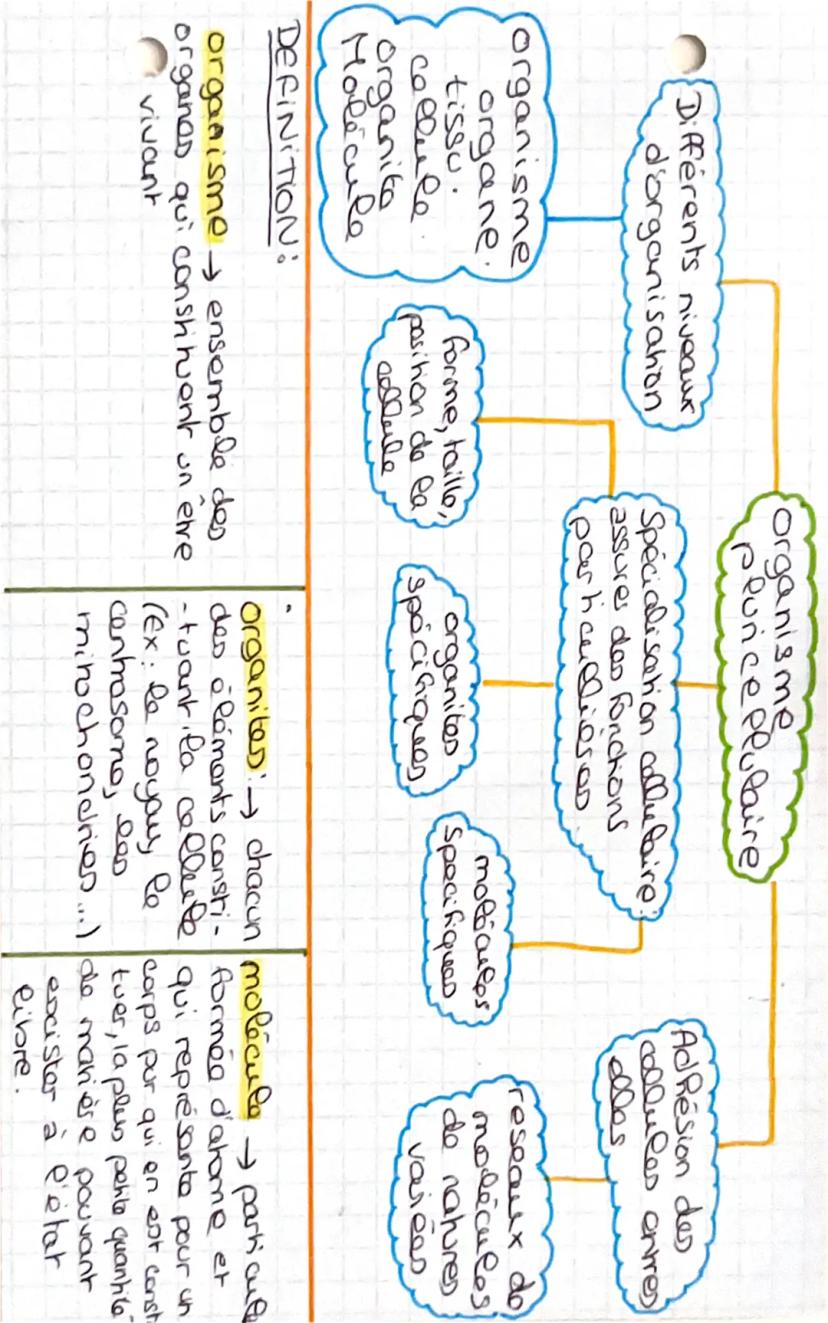 organisme
pluricellulaire
Différents niveaux
d'organisation
organisme
organe.
tissu.
cellule.
organite
Molécule
Spécialisation cellulaire:
assures des fonctions
particullières
forme, taille,
position de la
cellule
organites
spécifiques
molécules
spécifiques
Adhésion des
cellules entres
elles
reseaux de
molécules
de natures
variées
DEFINITION:
organisme → ensemble des
organes qui constituent un être
vivant
organites: → chacun
des éléments consti-
-tuant la cellule
(Ex: le noyau, le
centrosome, les
mitochondries...)
molécule → particule
formée d'atome et
qui représente pour un
corps pur qui en est const
tuer, la plus petite quantité
de manière pouvant
excister à l'état
libre.